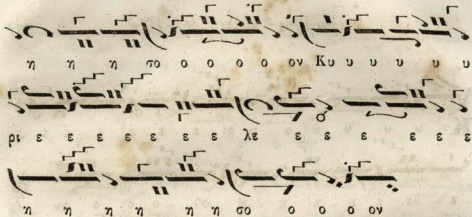 η η η η σο ο ο ο ο ον Κυ υ υ υ υ υ
ρι ε ε ε ε ε ε ε λε ε ε ε ε ε
η η η η η η η σο ο ο ο ον